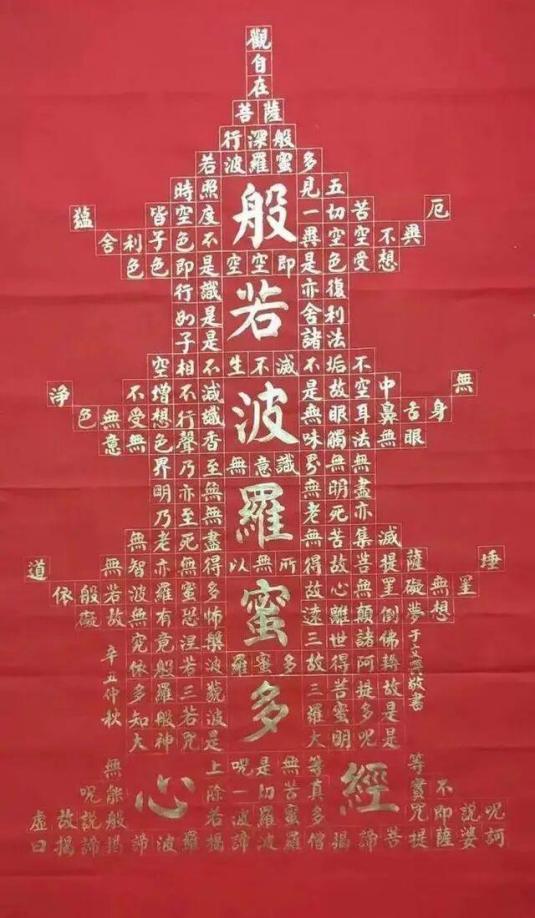 觀
自
在
菩薩
行深般
若波羅蜜多
時照見五
蘊皆空度一切苦厄
舍利子色不異空空不異
色色即是空空即是色受想
行識亦復
如是舍利
子是諸法
空相不生不滅不垢不
淨不增不減是故空中無
色無受想行識無眼耳鼻舌身
意無色聲香味觸法無眼
界乃至無意識界無無
明亦無無明盡
乃至無老死亦
無老死盡無苦集滅
道無智亦無得以無所得故菩提薩埵
依般若波羅蜜多故心無罣礙無罣
礙故無有恐怖遠離顛倒夢想
究竟涅槃三世諸佛
依般若波羅蜜多故得阿耨
多羅三藐三菩提故
知般若波羅蜜多是
大神咒是大明呪是
無上呪是無等等
呪能除一切苦真實不
虛故說般若波羅蜜多咒即說呪
曰揭諦揭諦波羅揭諦波羅僧揭諦菩提薩婆訶
般若波羅蜜多
心經
辛丑仲秋
敬書